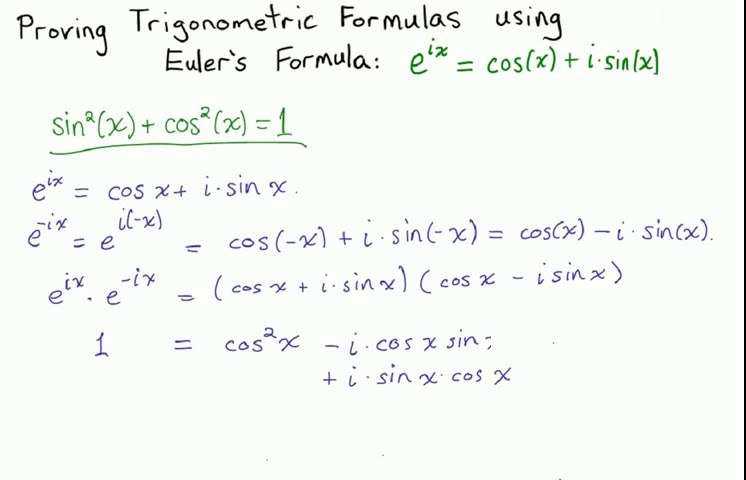 Proving Trigonometric Formulas using
Euler's Formula: e^{ix} = cos(x) + i·sin(x)
sin²(x) + cos²(x) = 1
e^{ix} = cos x + i·sin x.
e^{-ix} = e^{i(-x)} = cos(-x) + i·sin(-x) = cos(x) - i·sin(x).
e^{ix}·e^{-ix} = (cos x + i·sin x)(cos x - i sin x)
1 = cos²x - i·cos x sin
+ i·sin x·cos x